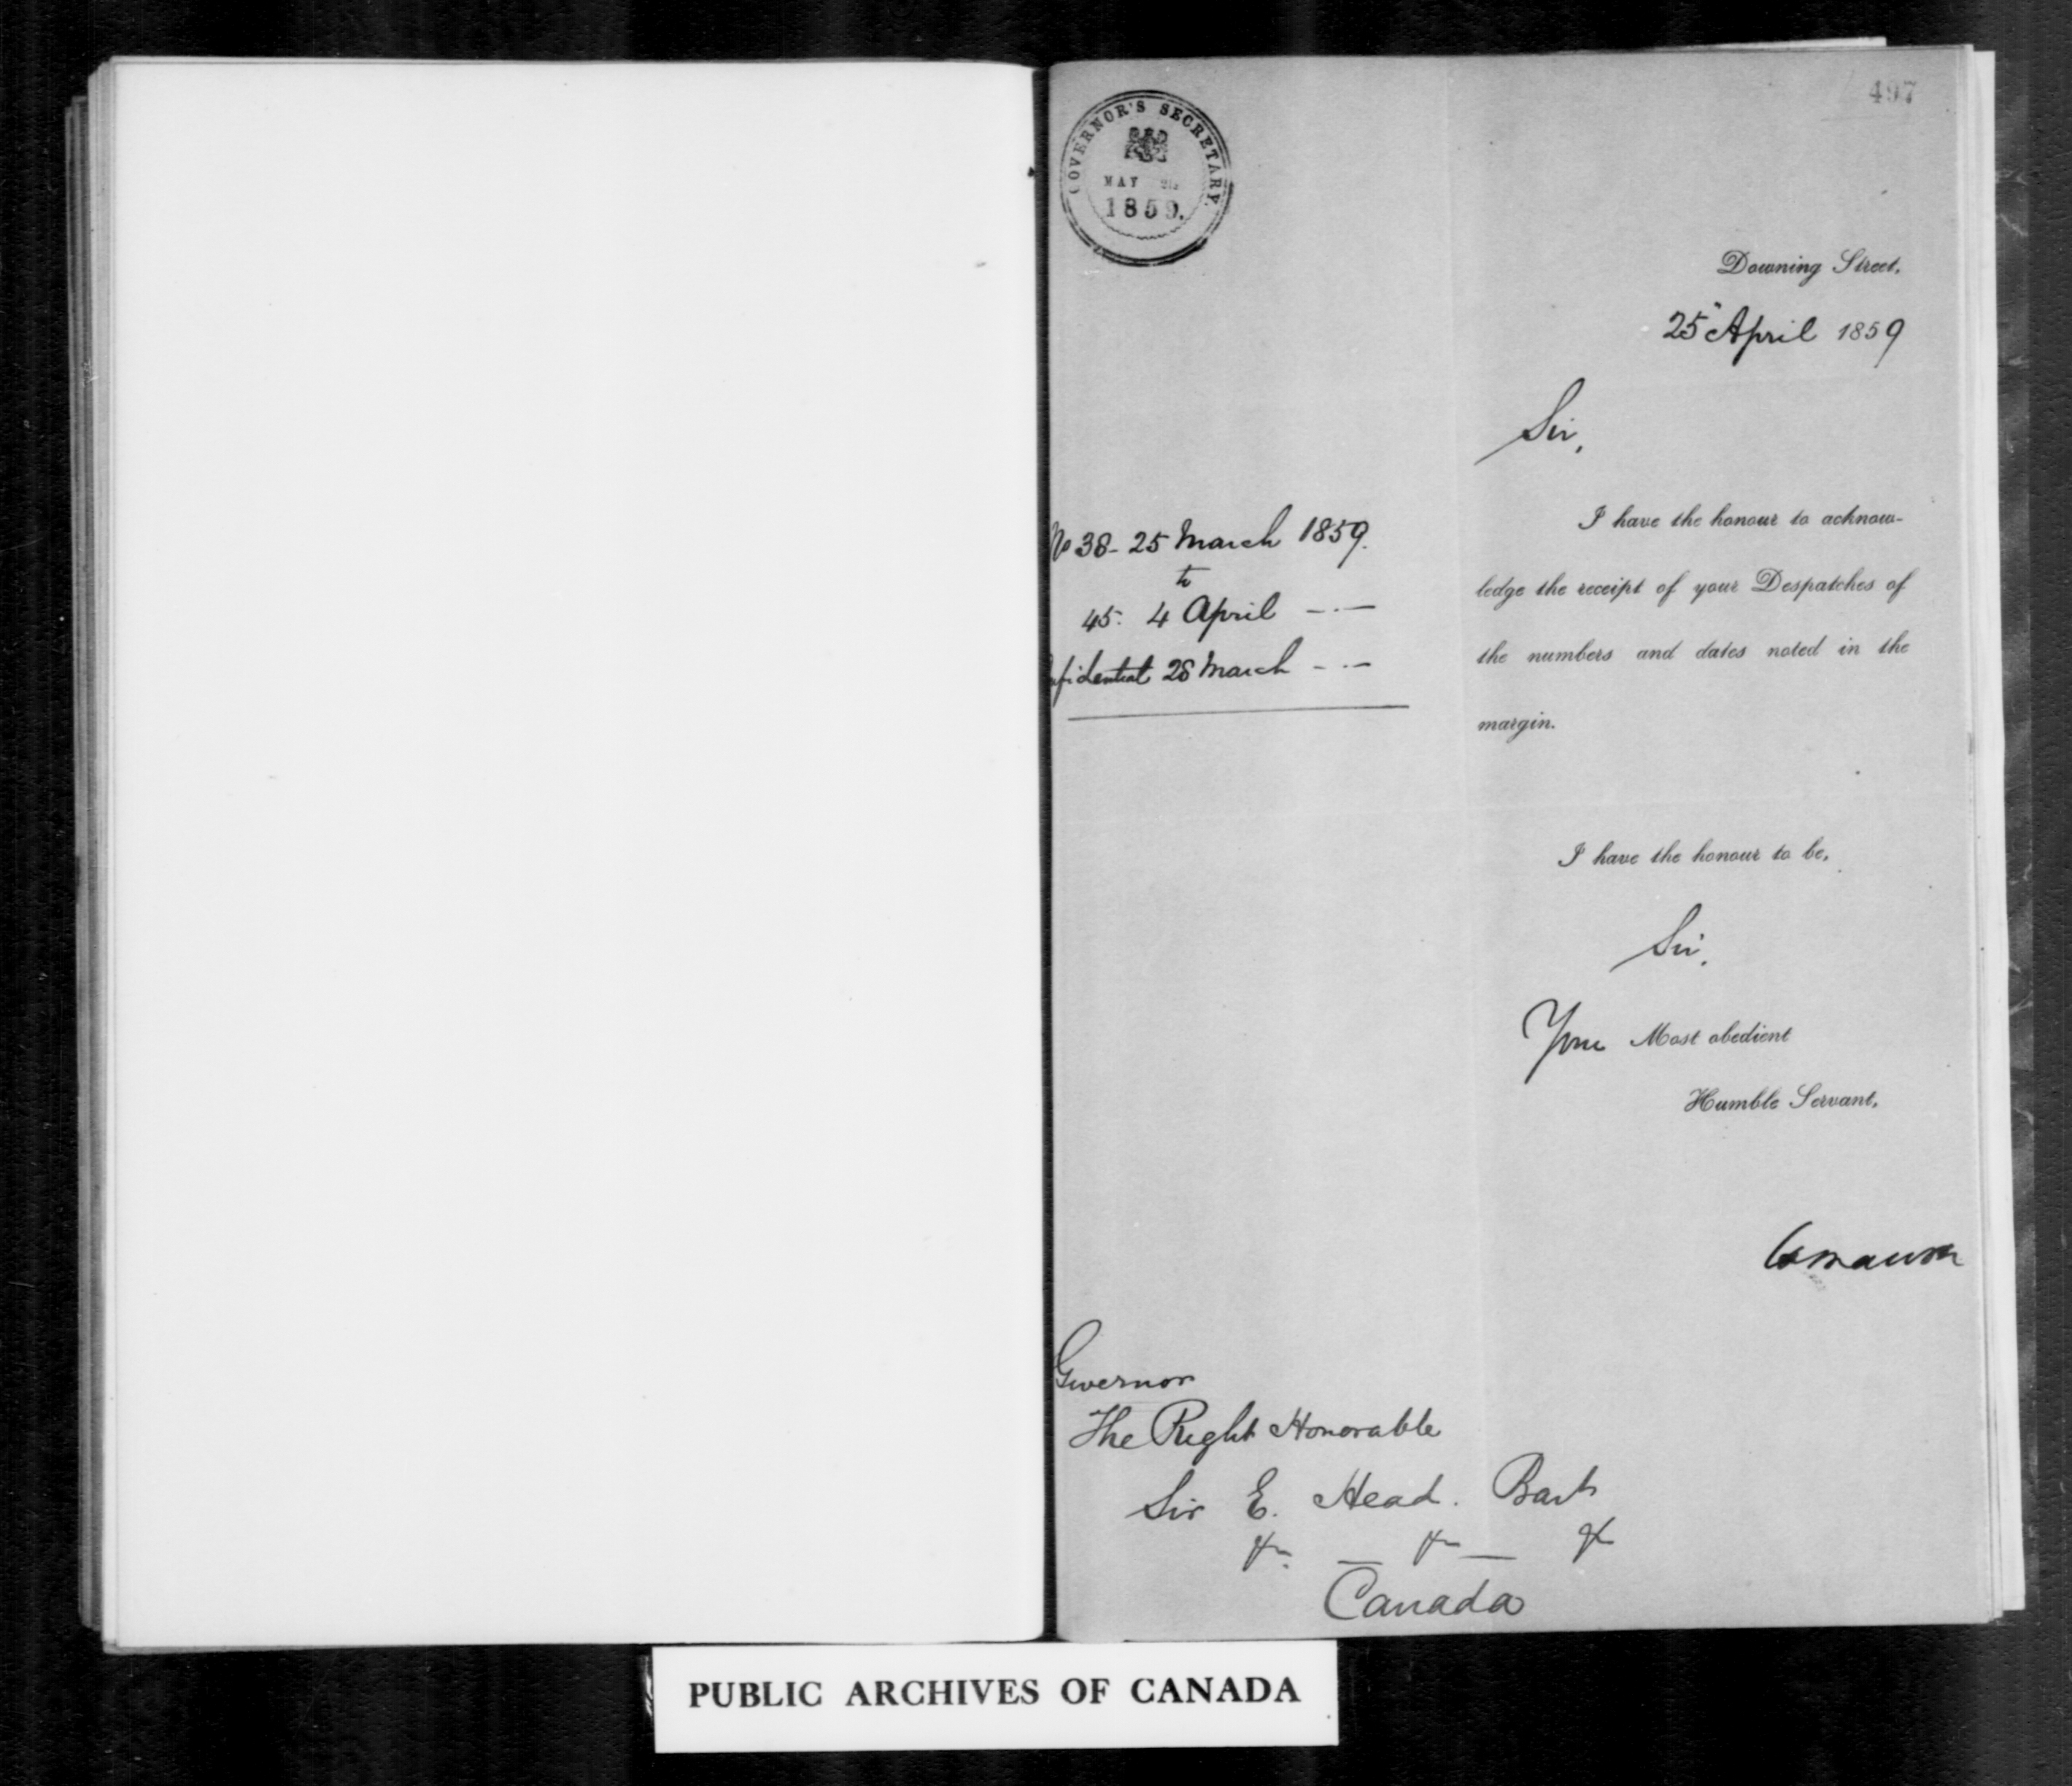 497
GOVERNOR'S SECRETARY.
MAY
1859.
Downing Street,
25 April 1859
Sir,
No 38- 25 March 1859.
to
45. 4 April - . -
nfidential 28 March - . -
I have the honour to acknow-
ledge the receipt of your Despatches of
the numbers and dates noted in the
margin.
I have the honour to be,
Sir,
Your Most obedient
Humble Servant,
Governor
The Right Honorable
Sir E. Head. Bart
&c. — &c — &c
Canada
PUBLIC ARCHIVES OF CANADA